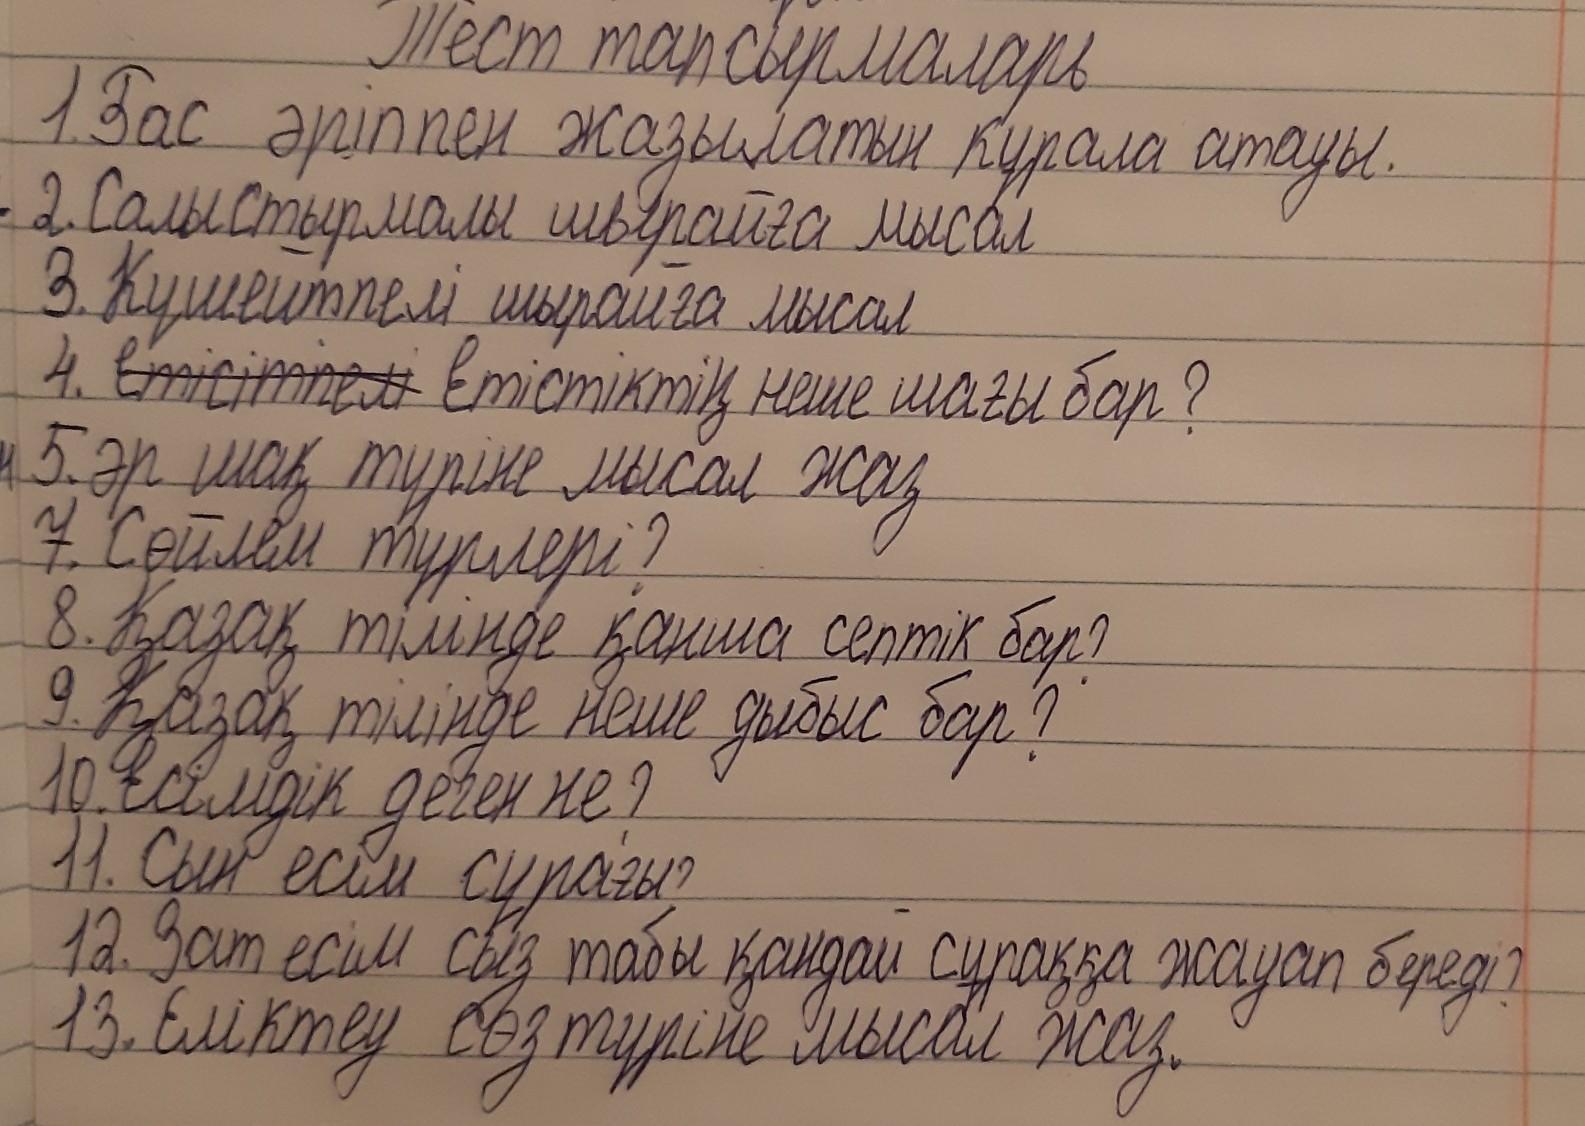 Тест тапсырмалары
1. Бас әріппен жазылатын құрала атауы.
2. Салыстырмалы шырайға мысал
3. Күшейтпелі шырайға мысал
4. Етісітпелі Етістіктің неше шағы бар?
5. әр шақ түріне мысал жаз
7. Сөйлем түрлері?
8. Қазақ тілінде қанша септік бар?
9. Қазақ тілінде неше дыбыс бар?
10. Есімдік деген не?
11. Сын есім сұрағы?
12. Зат есім сыз табы қандай сұраққа жауап береді?
13. Еліктеу сөз түріне мысал жаз.